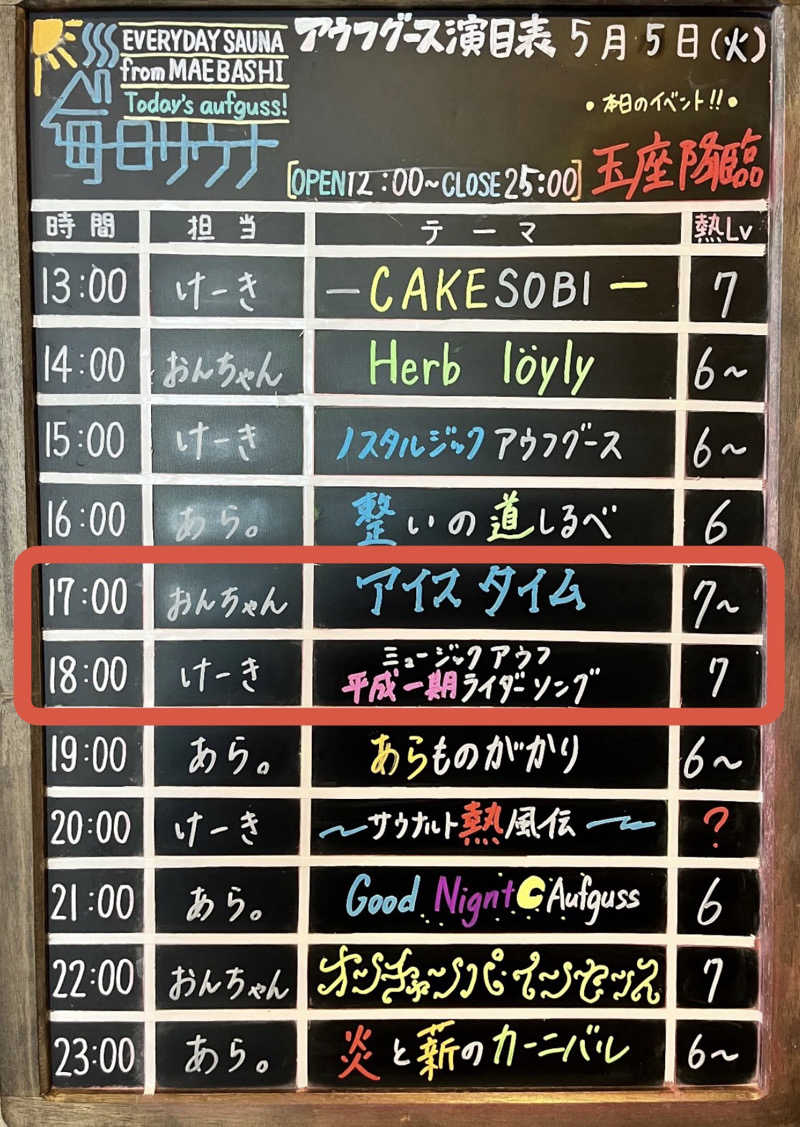 EVERYDAY SAUNA
from MAEBASHI
Today's aufguss!
毎日サウナ
アウフグース演目表 5月5日(火)
•本日のイベント!!•
[OPEN12:00~CLOSE25:00]
玉座降臨
時間 担当 テーマ 熱Lv
13:00 けーき —CAKESOBI— 7
14:00 おんちゃん Herb löyly 6~
15:00 けーき ノスタルジックアウフグース 6~
16:00 あら。 整いの道しるべ 6
17:00 おんちゃん アイスタイム 7~
18:00 けーき ミュージックアウフ 7
平成一期ライダーソング
19:00 あら。 あらものがかり 6~
20:00 けーき ~サウナルト熱風伝~ ?
21:00 あら。 Good Nignt Aufguss 6
22:00 おんちゃん オンチャーンパ・インセンス 7
23:00 あら。 炎と薪のカーニバル 6~